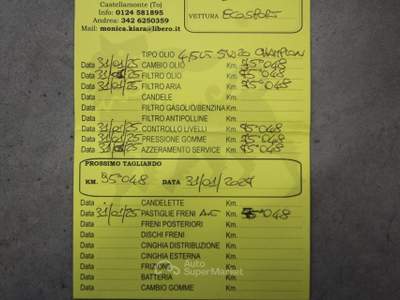 Castellamonte (To)
Info: 0124 581895
Andrea: 342 6250359
Mail: monica.kiara@libero.it
VETTURA ECOSPORT
TIPO OLIO 4,5LT 5W20 CHAMPION
Data 31/01/25 CAMBIO OLIO Km. 75°048
Data 31/01/25 FILTRO OLIO Km. 75°048
Data 31/01/25 FILTRO ARIA Km. 75°048
Data CANDELE Km.
Data FILTRO GASOLIO/BENZINA Km.
Data FILTRO ANTIPOLLINE Km.
Data 31/01/25 CONTROLLO LIVELLI Km. 75°048
Data 31/01/25 PRESSIONE GOMME Km. 75°048
Data 31/01/25 AZZERAMENTO SERVICE Km. 75°048
PROSSIMO TAGLIANDO
KM. 95°048 DATA 31/01/2027
Data CANDELETTE Km.
Data 31/01/25 PASTIGLIE FRENI Km. 75°048
Data FRENI POSTERIORI Km.
Data DISCHI FRENI Km.
Data CINGHIA DISTRIBUZIONE Km.
Data CINGHIA ESTERNA Km.
Data FRIZIONE Km.
Data BATTERIA Km.
Data CAMBIO GOMME Km.
Auto
SuperMarket